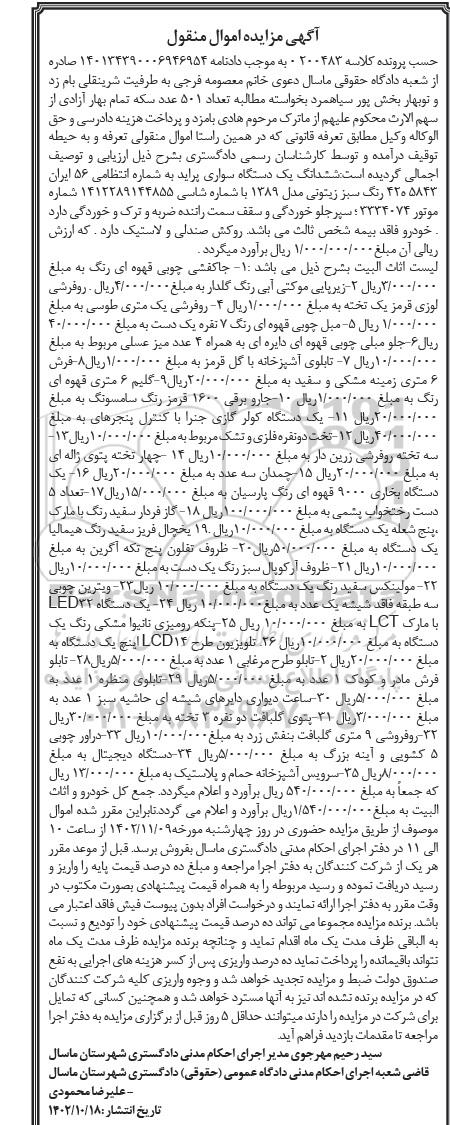 آگهی مزایده اموال منقول
حسب پرونده کلاسه ۰۲۰۰۴۸۳ به موجب دادنامه ۱۴۰۱۳۴۳۹۰۰۰۶۹۴۶۹۵۴ صادره
از شعبه دادگاه حقوقی ماسال دعوی خانم معصومه فرجی به طرفیت شرینقلی بام زد
و نوبهار بخش پور سیاهمرد بخواسته مطالبه تعداد ۵۰۱ عدد سکه تمام بهار آزادی از
سهم الارث محکوم علیهم از ماترک مرحوم هادی بامزد و پرداخت هزینه دادرسی و حق
الوکاله وکیل مطابق تعرفه قانونی که در همین راستا اموال منقولی تعرفه و به حیطه
توقیف درآمده و توسط کارشناسان رسمی دادگستری بشرح ذیل ارزیابی و توصیف
اجمالی گردیده است:ششدانگ یک دستگاه سواری پراید به شماره انتظامی ۵۶ ایران
۵۸۴۳ ۴۲ رنگ سبز زیتونی مدل ۱۳۸۹ با شماره شاسی ۱۴۱۲۲۸۹۱۴۴۸۵۵ شماره
موتور ۳۳۳۴۰۷۴ ؛ سپرجلو خوردگی و سقف سمت راننده ضربه و ترک و خوردگی دارد
. خودرو فاقد بیمه شخص ثالث می باشد. روکش صندلی و لاستیک دارد . که ارزش
ریالی آن مبلغ۱/۰۰۰/۰۰۰/۰۰۰ ریال برآورد میگردد .
لیست اثاث البیت بشرح ذیل می باشد :۱- جاکفشی چوبی قهوه ای رنگ به مبلغ
۳/۰۰۰/۰۰۰ریال ۲-زیرپایی موکتی آبی رنگ گلدار به مبلغ۴/۰۰۰/۰۰۰ریال . روفرشی
لوزی قرمز یک تخته به مبلغ ۱/۰۰۰/۰۰۰ریال ۴- روفرشی یک متری طوسی به مبلغ
۱/۰۰۰/۰۰۰ ریال ۵-مبل چوبی قهوه ای رنگ ۷ نفره یک دست به مبلغ ۴۰/۰۰۰/۰۰۰
ریال۶-جلو مبلی چوبی قهوه ای دایره ای به همراه ۴ عدد میز عسلی مربوط به مبلغ
۱۰/۰۰۰/۰۰۰ریال ۷- تابلوی آشپزخانه با گل قرمز به مبلغ ۱/۰۰۰/۰۰۰ریال۸-فرش
۶ متری زمینه مشکی و سفید به مبلغ ۲۰/۰۰۰/۰۰۰ریال۹-گلیم ۶ متری قهوه ای
رنگ به مبلغ ۱/۰۰۰/۰۰۰ریال ۱۰-جارو برقی ۱۶۰۰ قرمز رنگ سامسونگ به مبلغ
۲۰/۰۰۰/۰۰۰ریال ۱۱- یک دستگاه کولر گازی جنرا با کنترل پنجرهای به مبلغ
۴۰/۰۰۰/۰۰۰ریال ۱۲-تخت دونفره فلزی و تشک مربوط به مبلغ ۱۰/۰۰۰/۰۰۰ریال۱۳-
سه تخته روفرشی زرین دار به مبلغ ۱۰/۰۰۰/۰۰۰ریال ۱۴ -چهار تخته پتوی ژاله ای
به مبلغ ۲۰/۰۰۰/۰۰۰ریال ۱۵-چمدان سه عدد به مبلغ ۲۰/۰۰۰/۰۰۰ریال ۱۶- یک
دستگاه بخاری ۹۰۰۰ قهوه ای رنگ پارسیان به مبلغ ۱۵/۰۰۰/۰۰۰ریال۱۷-تعداد ۵
دست رختخواب پشمی به مبلغ ۱۰۰/۰۰۰/۰۰۰ریال ۱۸- گاز فردار سفید رنگ با مارک
،پنج شعله یک دستگاه به مبلغ ۱۰/۰۰۰/۰۰۰ریال .۱۹ یخچال فریز سفید رنگ هیمالیا
یک دستگاه به مبلغ ۵۰/۰۰۰/۰۰۰ریال۲۰- ظروف تفلون پنج تکه آگرین به مبلغ
۱۰/۰۰۰/۰۰۰ریال ۲۱-ظروف آرکوپال سبز رنگ یک دست به مبلغ ۱۰/۰۰۰/۰۰۰ریال
۲۲- مولینکس سفید رنگ یک دستگاه به مبلغ ۱۰/۰۰۰/۰۰۰ ریال۲۳- ویترین چوبی
سه طبقه فاقد شیشه یک عدد به مبلغ ۱۰/۰۰۰/۰۰۰ ریال ۲۴- یک دستگاه LED۳۲
با مارک LCT به مبلغ ۱۰/۰۰۰/۰۰۰ ریال ۲۵-پنکه رومیزی ناتیوا مشکی رنگ یک
دستگاه به مبلغ ۱۰/۰۰۰/۰۰۰ریال ۲۶. تلویزیون طرح LCD۱۴ اینچ یک دستگاه به
مبلغ ۲۰/۰۰۰/۰۰۰ریال ۲-تابلو طرح مرغابی ۱ عدد به مبلغ ۵/۰۰۰/۰۰۰ریال۲۸- تابلو
فرش مادر و کودک ۱ عدد به مبلغ ۵/۰۰۰/۰۰۰ریال ۲۹-تابلوی منظره ۱ عدد به
مبلغ ۵/۰۰۰/۰۰۰ریال ۳۰-ساعت دیواری دایرهای شیشه ای حاشیه سبز ۱ عدد به
مبلغ ۳/۰۰۰/۰۰۰ریال ۳۱-پتوی گلبافت دو نفره ۳ تخته به مبلغ ۳۰/۰۰۰/۰۰۰ریال
۳۲-روفروشی ۹ متری گلبافت بنفش زرد به مبلغ۱۰/۰۰۰/۰۰۰ریال ۳۳-دراور چوبی
۵ کشویی و آینه بزرگ به مبلغ ۵/۰۰۰/۰۰۰ریال ۳۴-دستگاه دیجیتال به مبلغ
۸/۰۰۰/۰۰۰ریال ۳۵-سرویس آشپزخانه حمام و پلاستیک به مبلغ ۱۳/۰۰۰/۰۰۰ ریال
که جمعاً به مبلغ ۵۴۰/۰۰۰/۰۰۰ ریال برآورد و اعلام میگردد. جمع کل خودرو و اثاث
البیت به مبلغ۱/۵۴۰/۰۰۰/۰۰۰ریال برآورد و اعلام می گردد.تابراین مقرر شده اموال
موصوف از طریق مزایده حضوری در روز چهارشنبه مورخه۱۴۰۲/۱۱/۰۹ از ساعت ۱۰
الی ۱۱ در دفتر اجرای احکام مدنی دادگستری ماسال بفروش برسد. قبل از موعد مقرر
هر یک از شرکت کنندگان به دفتر اجرا مراجعه و مبلغ ده درصد قیمت پایه را واریز و
رسید دریافت نموده و رسید مربوطه را به همراه قیمت پیشنهادی بصورت مکتوب در
وقت مقرر به دفتر اجرا ارائه نمایند و درخواست افراد بدون پیوست فیش فاقد اعتبار می
باشد. برنده مزایده مجموعا می تواند ده درصد قیمت پیشنهادی خود را تودیع و نسبت
به الباقی ظرف مدت یک ماه اقدام نماید و چنانچه برنده مزایده ظرف مدت یک ماه
نتواند باقیمانده را پرداخت نماید ده درصد واریزی پس از کسر هزینه های اجرایی به نفع
صندوق دولت ضبط و مزایده تجدید خواهد شد و وجوه واریزی کلیه شرکت کنندگان
که در مزایده برنده نشده اند نیز به آنها مسترد خواهد شد و همچنین کسانی که تمایل
برای شرکت در مزایده را دارند میتوانند حداقل ۵ روز قبل از برگزاری مزایده به دفتر اجرا
مراجعه تا مقدمات بازدید فراهم آید.
سید رحیم مهرجوی مدیر اجرای احکام مدنی دادگستری شهرستان ماسال
قاضی شعبه اجرای احکام مدنی دادگاه عمومی (حقوقی) دادگستری شهرستان ماسال
– علیرضا محمودی
تاریخ انتشار :۱۴۰۲/۱۰/۱۸